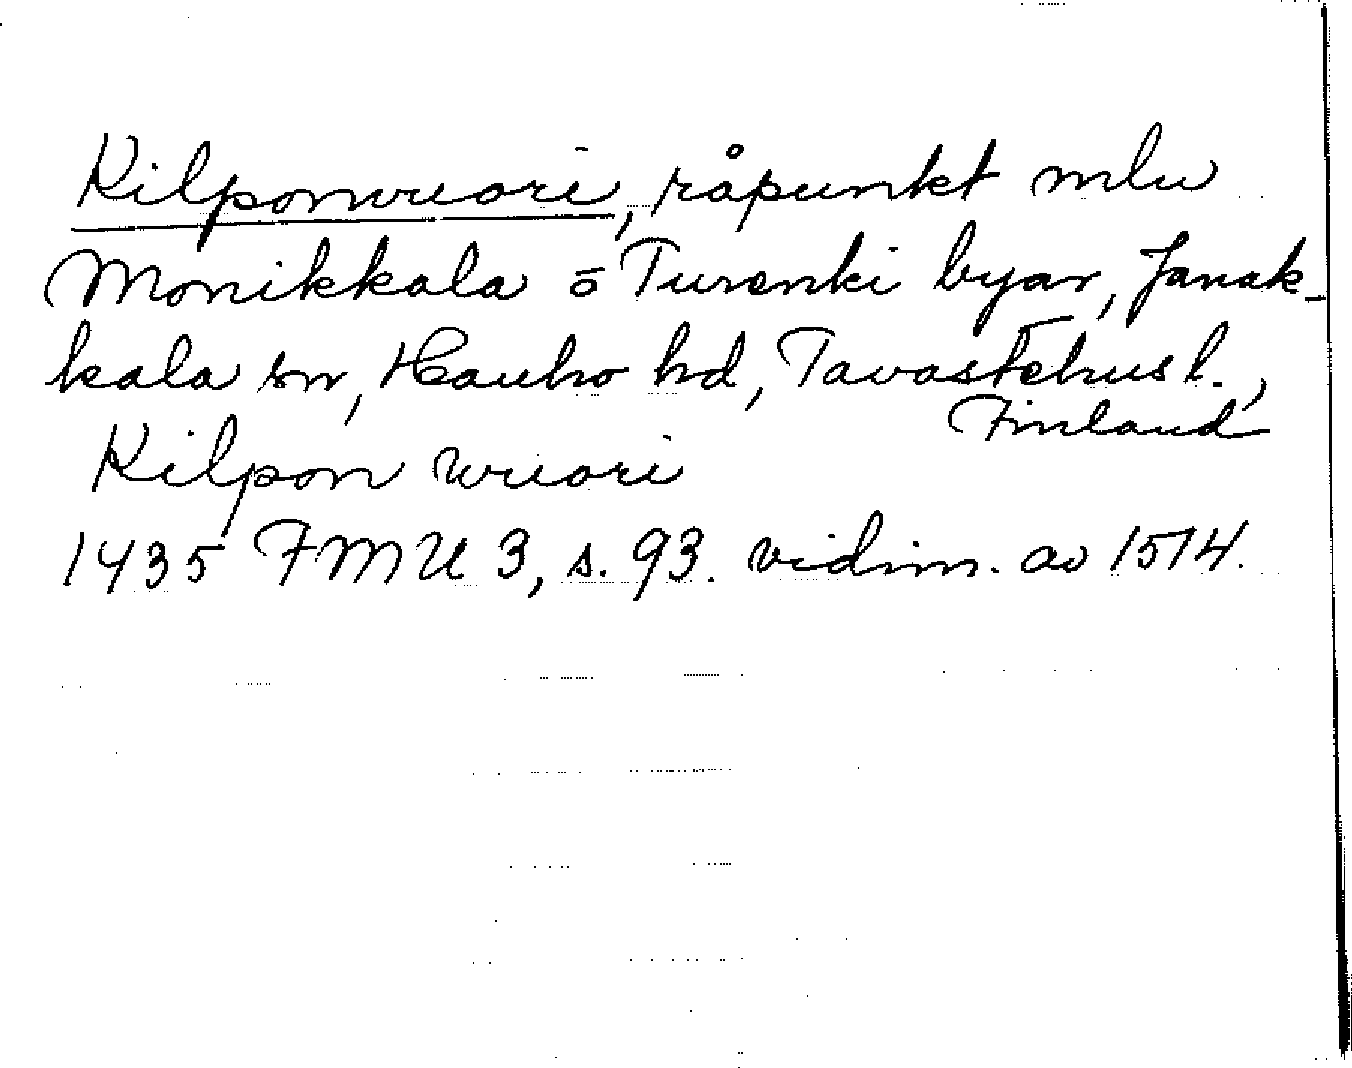 Kilponwuori, råpunkt mlu
Monikkala o Turenki byar, Janak-
kala sn, Hauho hd, Tavastehus l.,
Finland
Kilpon wuori
1435 FMU 3, s. 93. vidim. av 1514.